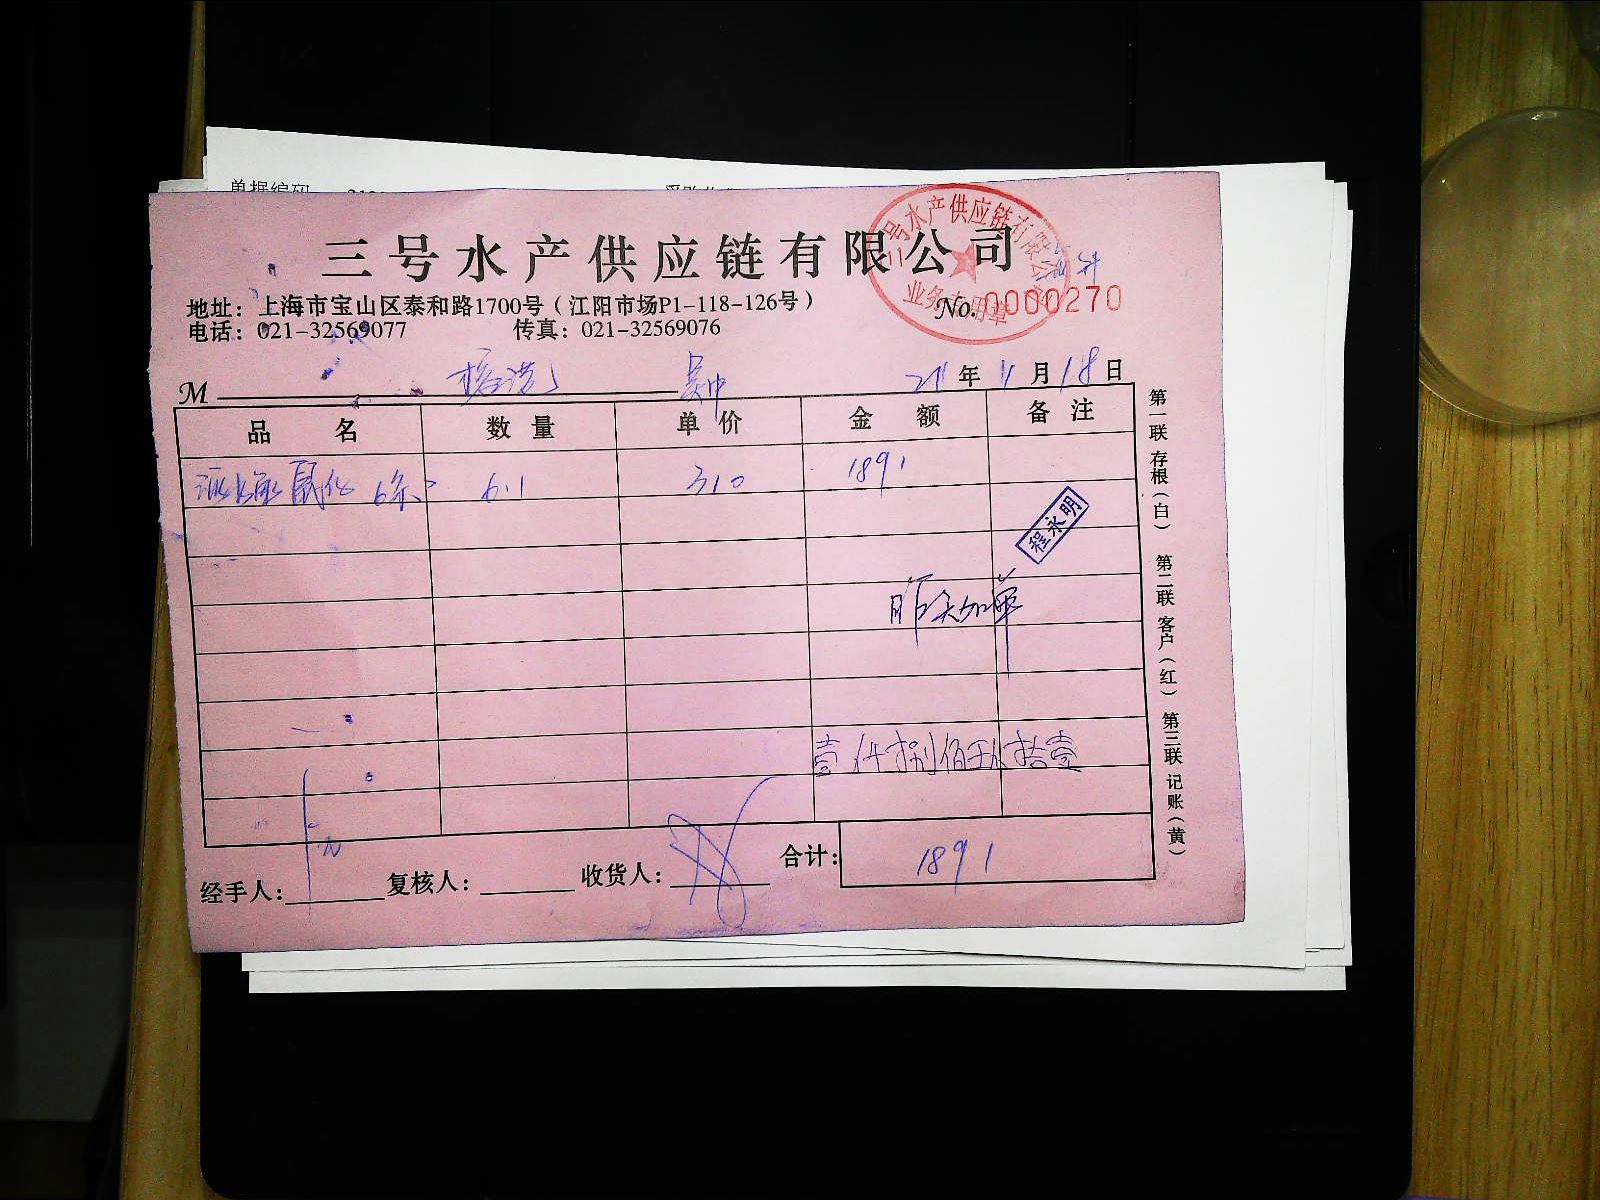 单据编码
三号水产供应链有限公司
三号水产供应链有限公司
业务专用章
地址：上海市宝山区泰和路1700号（江阳市场P1-118-126号）
No.0000270
电话：021-32569077 传真：021-32569076
M 吴中 21年11月18日
品名 数量 单价 金额 备注
6条 6.1 310 1891
程永明
昨天如单
壹仟捌佰玖拾壹
经手人： 复核人： 收货人： 合计：1891
第一联存根（白） 第二联客户（红） 第三联记账（黄）